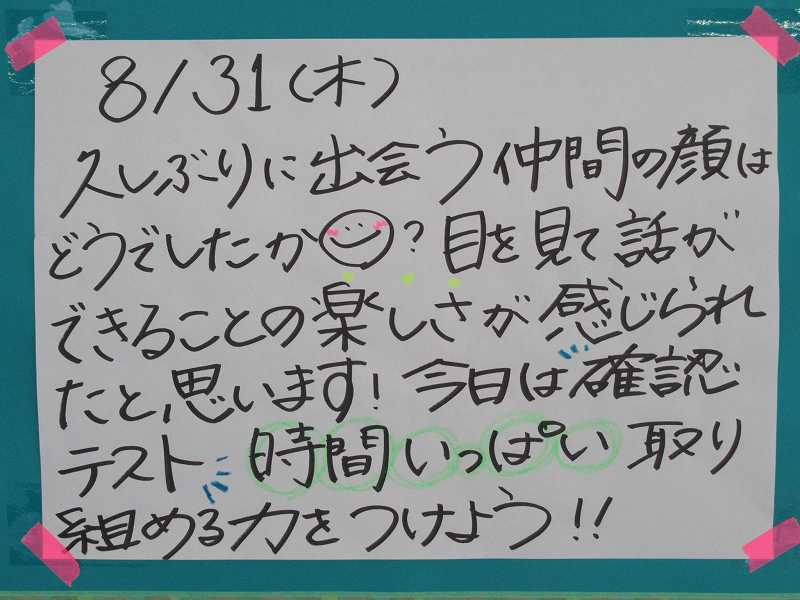 8/31(木)
久しぶりに出会う仲間の顔は
どうでしたか?目を見て話が
できることの楽しさが感じられ
たと思います!今日は確認
テスト 時間いっぱい取り
組める力をつけよう!!